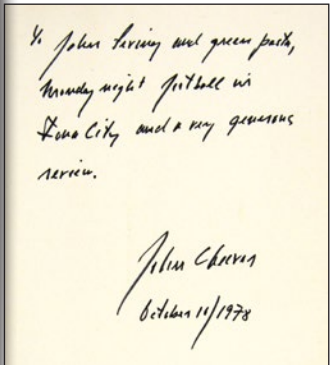 To John Irving and green pasta,
Monday night football in
Iowa City and a very generous
review.
John Cheever
October 10/1978